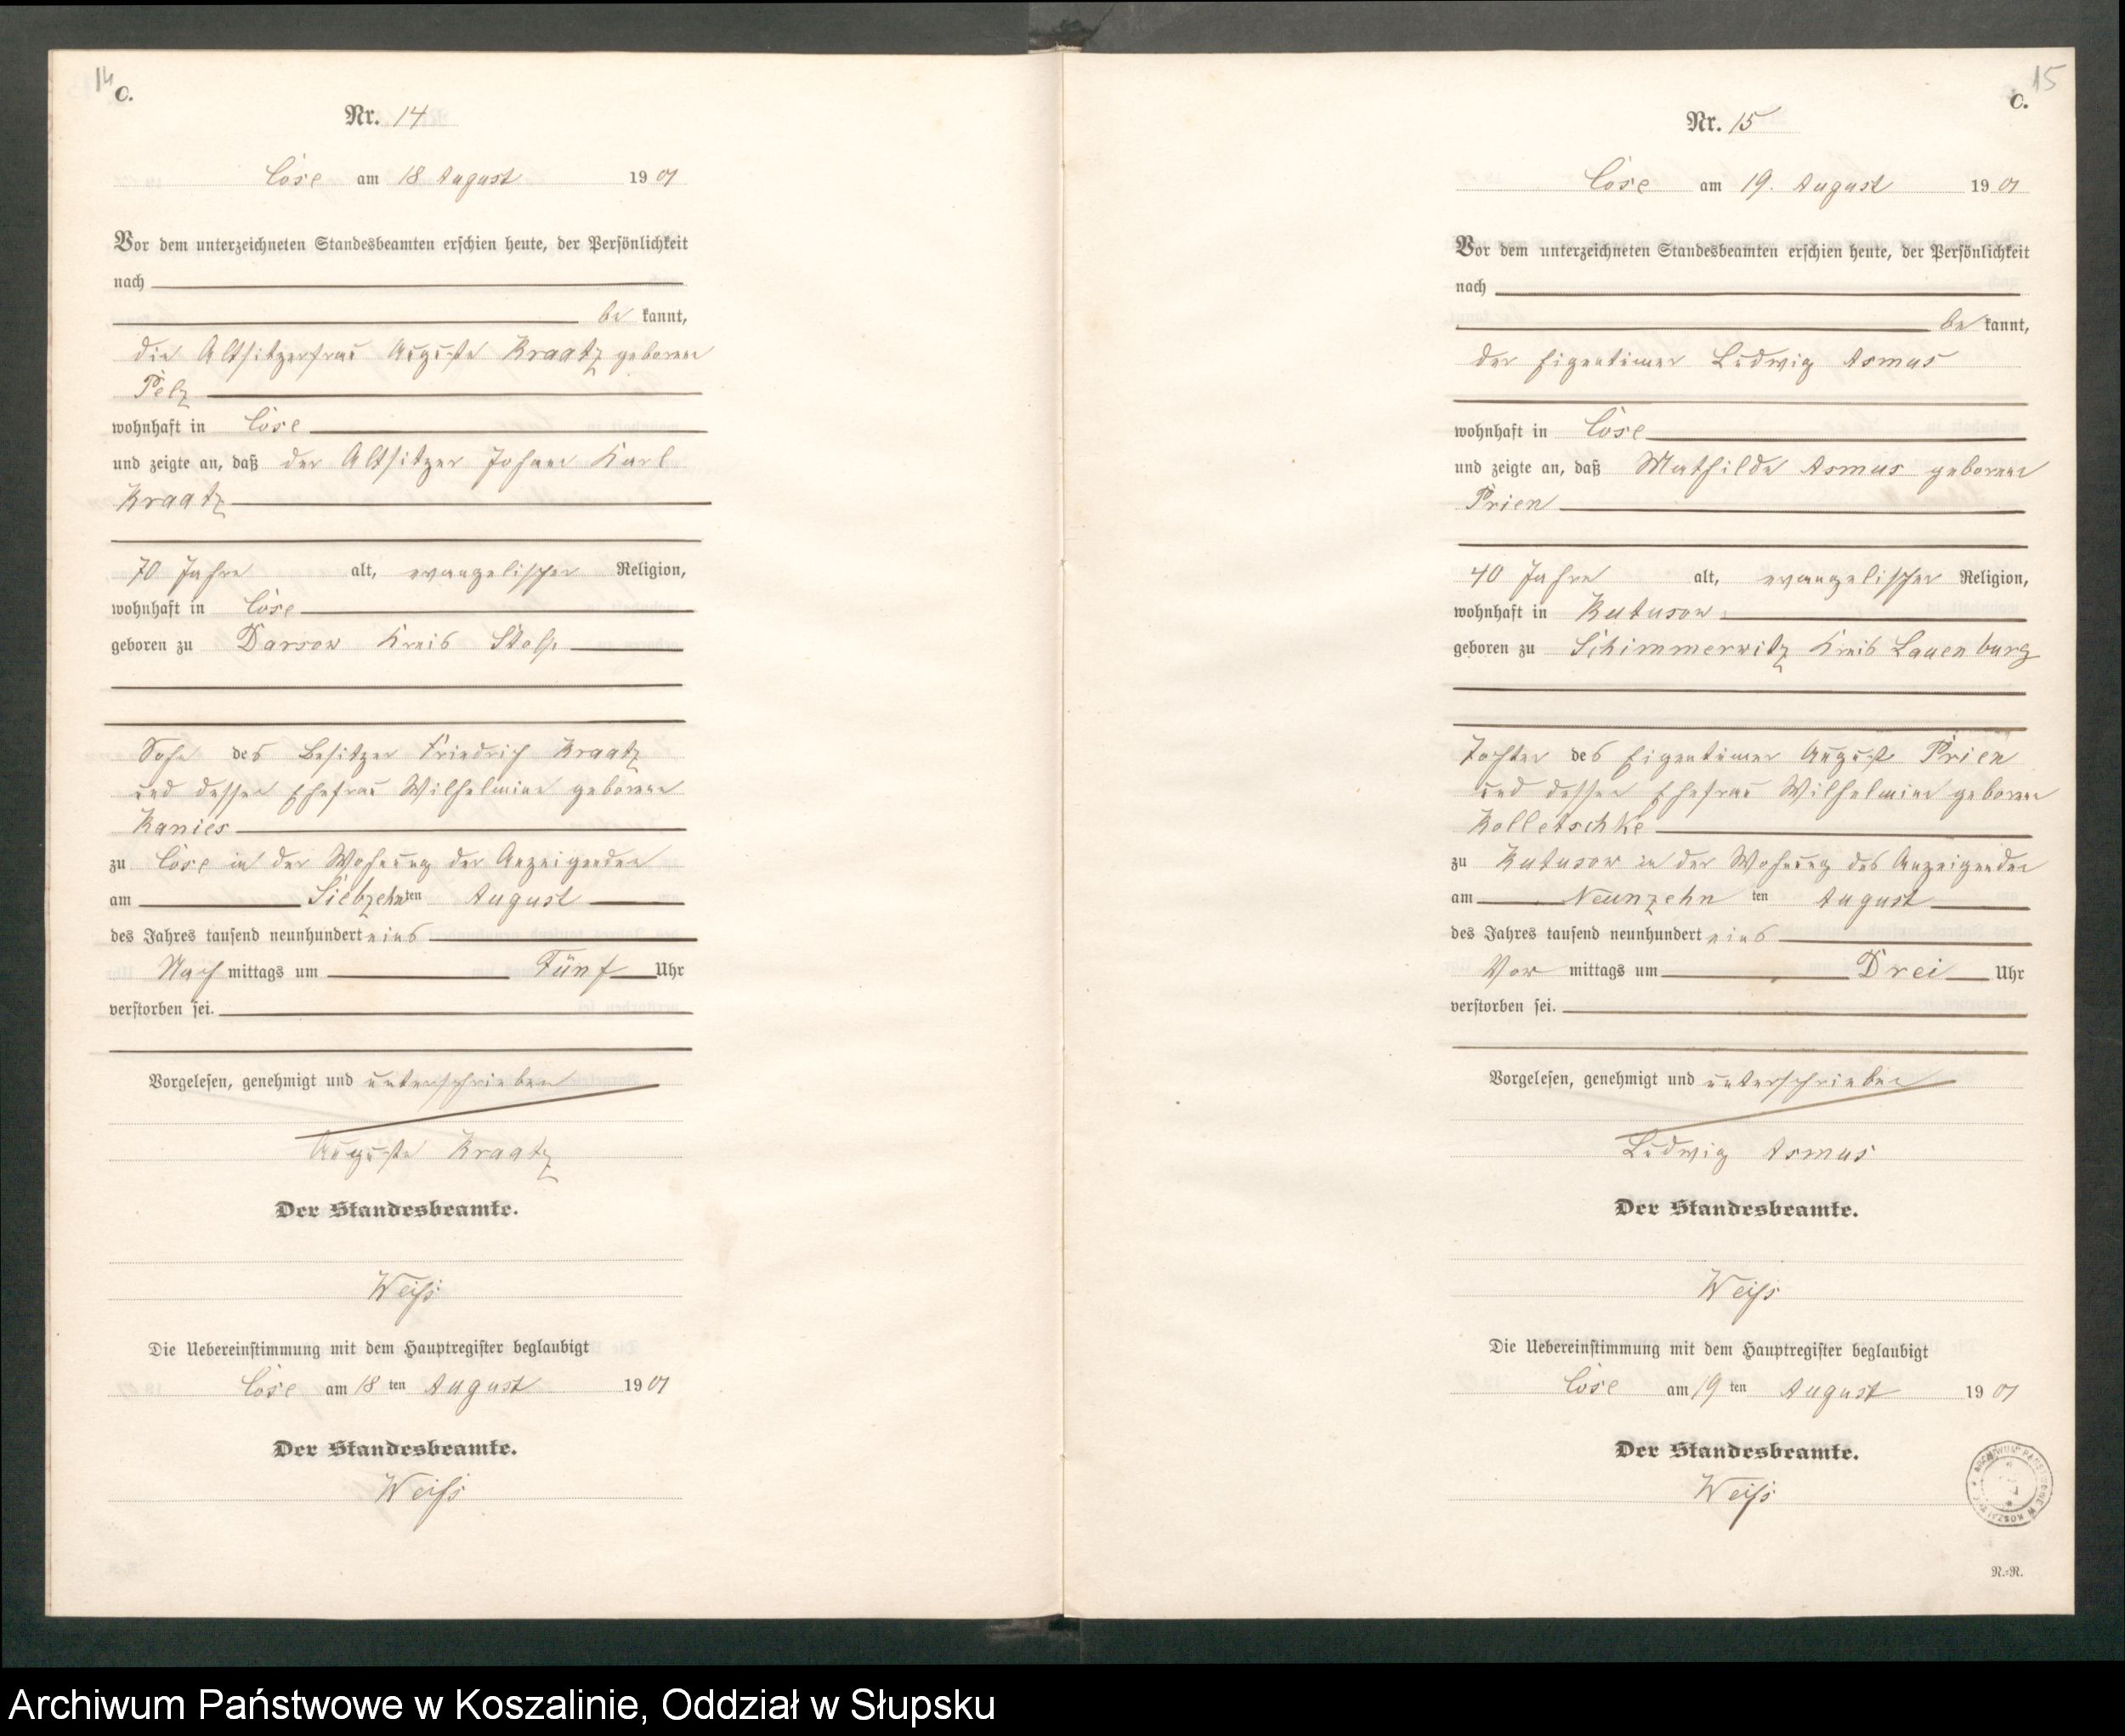 14
C.
Nr. 14
Cose am 18 August 1901
Vor dem unterzeichneten Standesbeamten erschien heute, der Persönlichkeit
nach
be kannt,
die Altsitzerfrau Auguste Kraatz geborene
Pelz
wohnhaft in Cose
und zeigte an, daß der Altsitzer Johann Karl
Kraatz
70 Jahre alt, evangelischer Religion,
wohnhaft in Cose
geboren zu Darsow Kreis Stolp
Sohn des Besitzer Friedrich Kraatz
und dessen Ehefrau Wilhelmine geborene
Kanies
zu Cose in der Wohnung der Anzeigenden
am Siebzehnten August
des Jahres tausend neunhundert eins
Nach mittags um Fünf Uhr
verstorben sei.
Vorgelesen, genehmigt und unterschrieben
Auguste Kraatz
Der Standesbeamte.
Weiß
Die Uebereinstimmung mit dem Hauptregister beglaubigt
Cose am 18 ten August 1901
Der Standesbeamte.
Weiß
15
C.
Nr. 15
Cose am 19. August 1901
Vor dem unterzeichneten Standesbeamten erschien heute, der Persönlichkeit
nach
be kannt,
der Eigentümer Ludwig Asmus
wohnhaft in Cose
und zeigte an, daß Mathilde Asmus geborene
Prien
40 Jahre alt, evangelischer Religion,
wohnhaft in Kutusow
geboren zu Schimmerwitz Kreis Lauenburg
Tochter des Eigentümer August Prien
und dessen Ehefrau Wilhelmine geborene
Kolletschke
zu Kutusow in der Wohnung des Anzeigenden
am Neunzehn ten August
des Jahres tausend neunhundert eins
Vor mittags um Drei Uhr
verstorben sei.
Vorgelesen, genehmigt und unterschrieben
Ludwig Asmus
Der Standesbeamte.
Weiß
Die Uebereinstimmung mit dem Hauptregister beglaubigt
Cose am 19 ten August 1901
Der Standesbeamte.
Weiß
ARCHIWUM PAŃSTWOWE W KOSZALINIE
N.=N.
Archiwum Państwowe w Koszalinie, Oddział w Słupsku